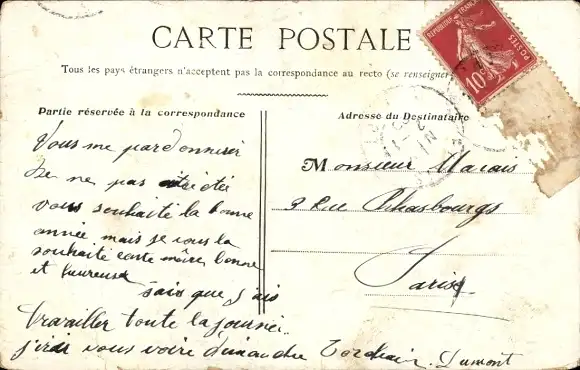 CARTE POSTALE
Tous les pays étrangers n'acceptent pas la correspondance au recto (se renseigner
Partie réservée à la correspondance
Vous me pardonnerer
de ne pas été
vous souhaité la bonne
année mais je vous la
souhaite bonne
et heureuse
sais que j'ais
travailler toute la journée.
j'irai vous voire dimanche Dumont
Adresse du Destinataire
Monsieur Marais
9 Rue Phasbourgs
Paris
REPUBLIQUE FRANÇAISE
POSTES
10c